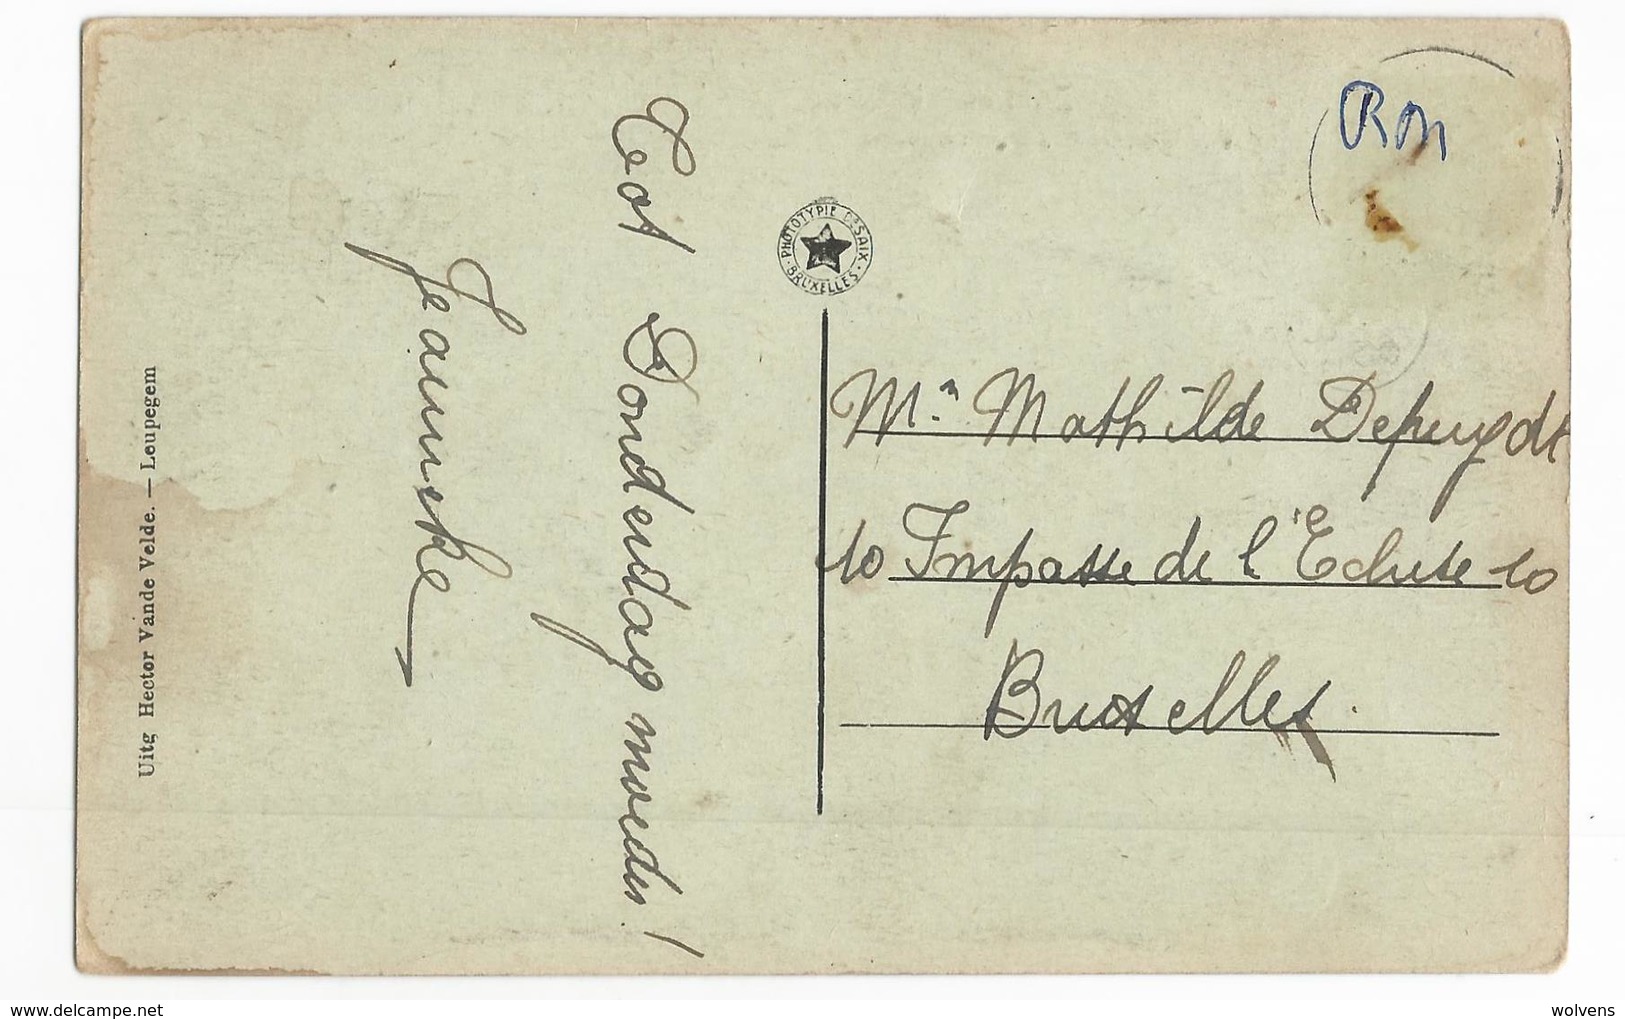 Tot Donderdag moeder!
Jeanneke
PHOTOTYPIE DESAIX
BRUXELLES
Uitg Hector Vande Velde. — Leupegem
Ron
Ma Mathilde Depuydt
10 Impasse de l'Ecluse 10
Bruxelles.
www.delcampe.net
wolvens